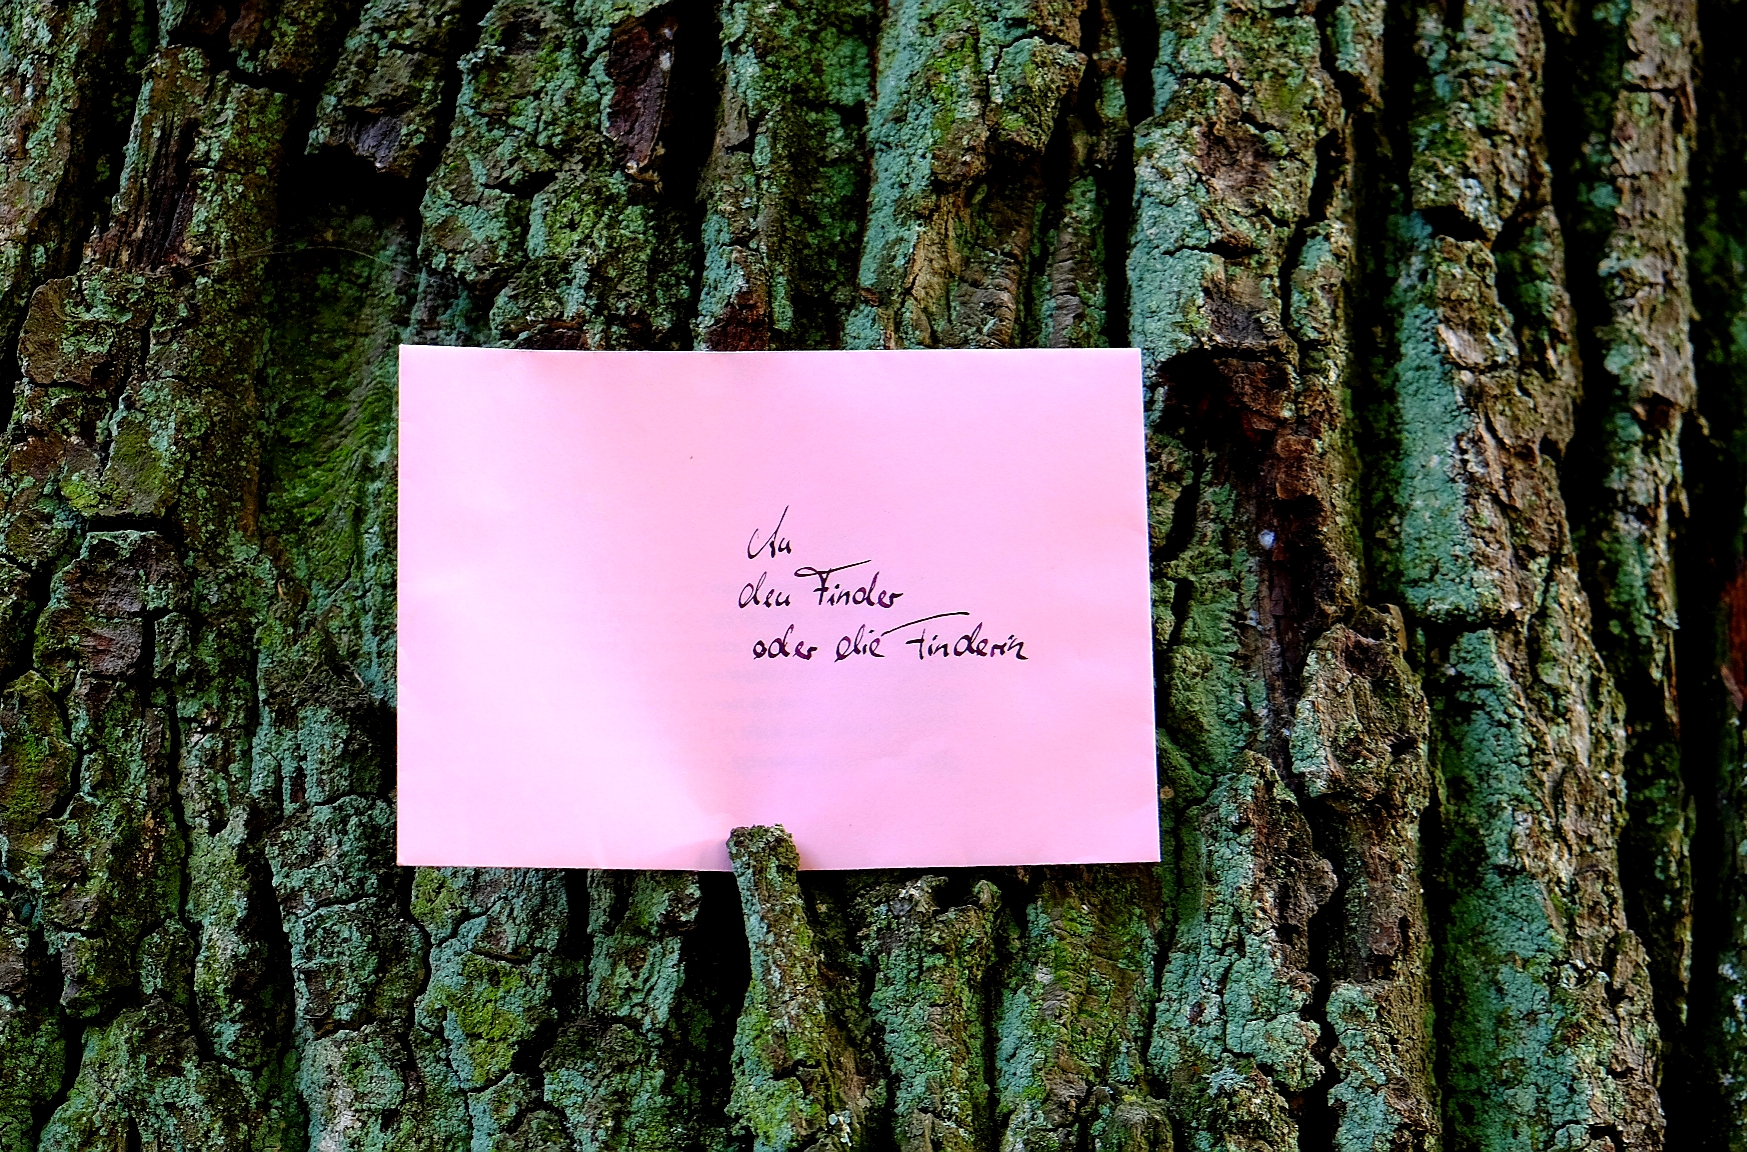 An
den Finder
oder die Finderin